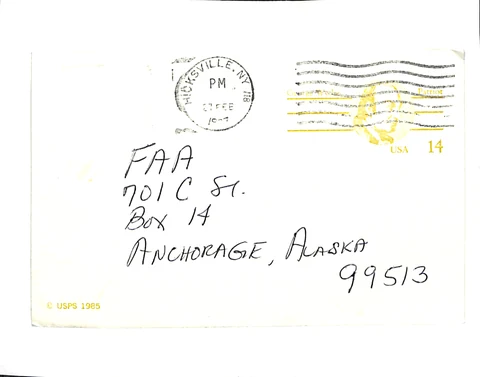 HICKSVILLE, NY 118
PM
FEB
USA 14
FAA
701 C St.
Box 14
ANCHORAGE, ALASKA
99513
© USPS 1985